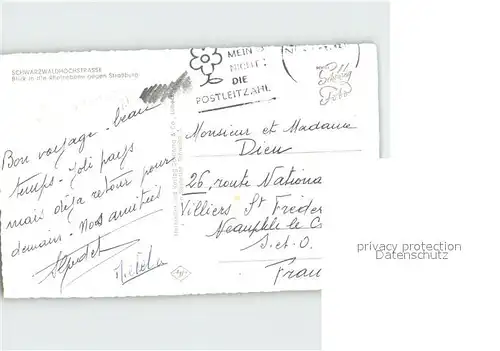 SCHWARZWALDHOCHSTRASSE
Blick in die Rheinebene gegen Straßburg
Bon voyage - beau
temps - Joli pays
mais déjà retour pour
demain - Nos amitiés
MEIN
NICHT:
DIE
POSTLEITZAHL
Schöning
Foto
Monsieur et Madame
Dieu
26, route Nationa
Villiers St Fréder
Neauphle le C
S. et. O.
Fran
privacy protection
Datenschutz